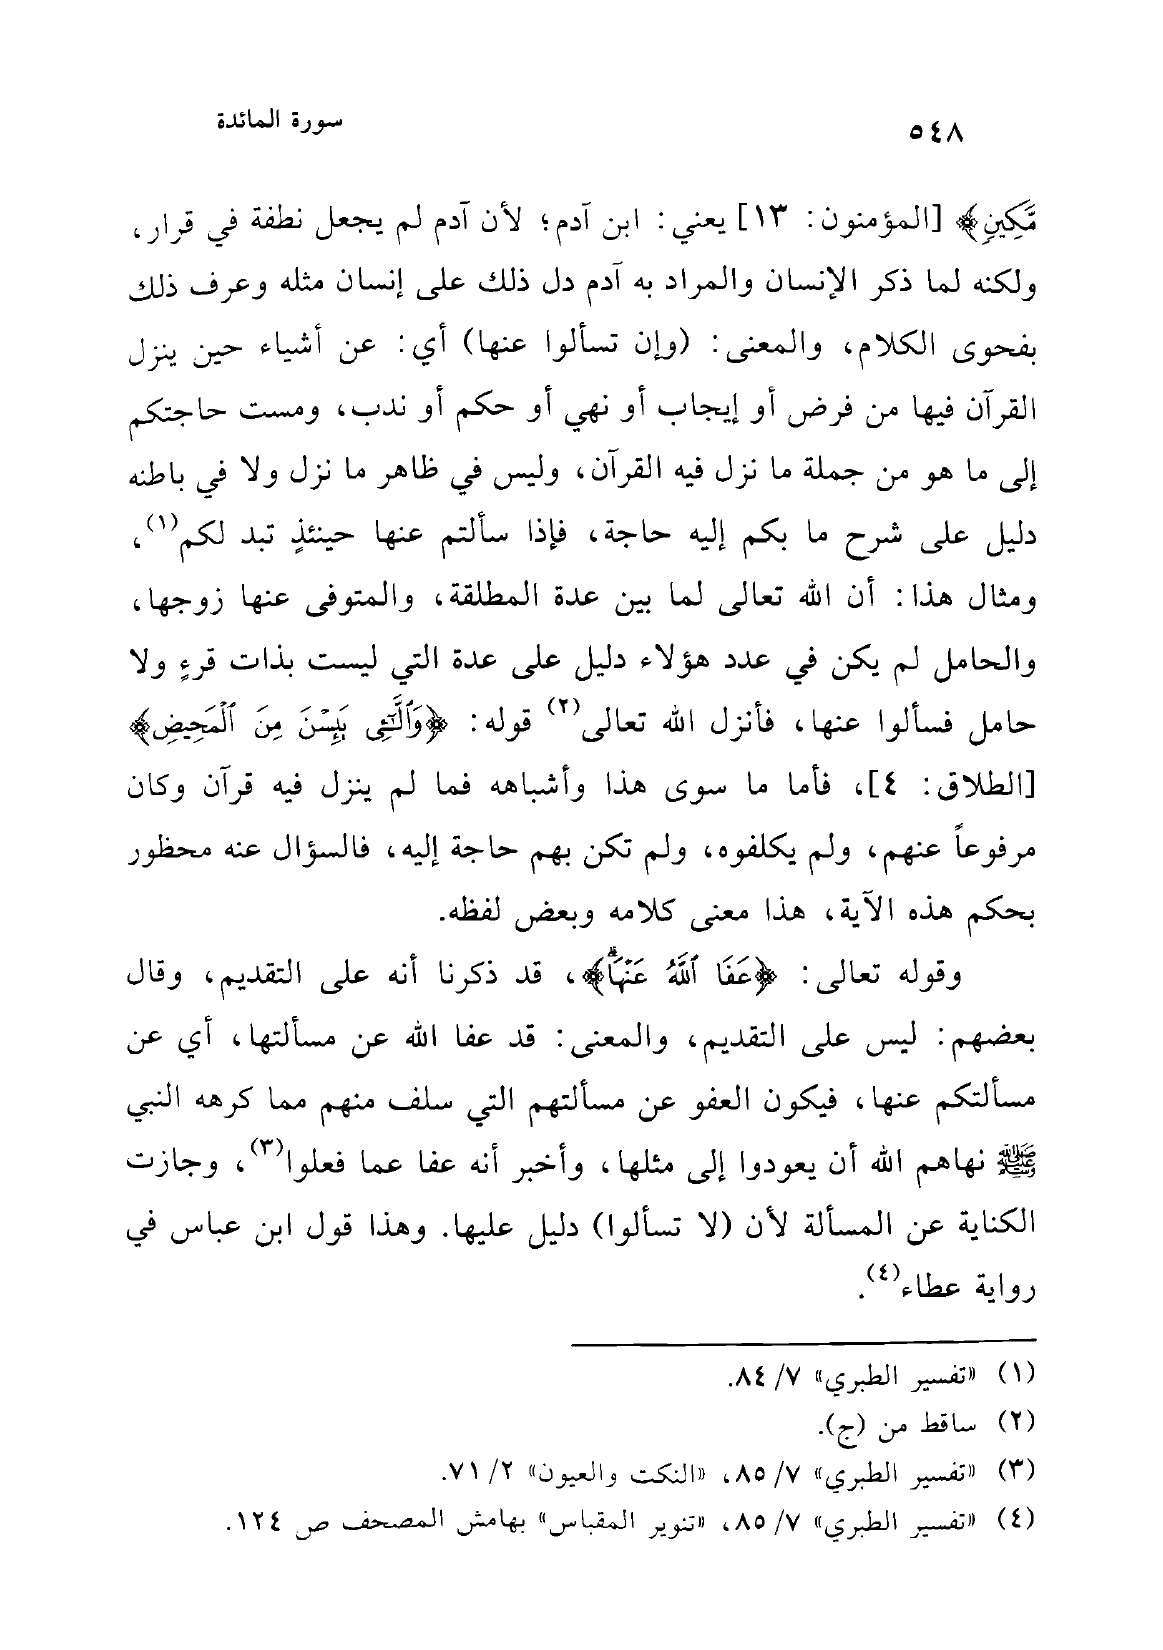 ٥٤٨
سورة المائدة
مَّكِينٍ﴾ [المؤمنون: ١٣] يعني: ابن آدم؛ لأن آدم لم يجعل نطفة في قرار،
ولكنه لما ذكر الإنسان والمراد به آدم دل ذلك على إنسان مثله وعرف ذلك
بفحوى الكلام، والمعنى: (وإن تسألوا عنها) أي: عن أشياء حين ينزل
القرآن فيها من فرض أو إيجاب أو نهي أو حكم أو ندب، ومست حاجتكم
إلى ما هو من جملة ما نزل فيه القرآن، وليس في ظاهر ما نزل ولا في باطنه
دليل على شرح ما بكم إليه حاجة، فإذا سألتم عنها حينئذٍ تبد لكم(١)،
ومثال هذا: أن الله تعالى لما بين عدة المطلقة، والمتوفى عنها زوجها،
والحامل لم يكن في عدد هؤلاء دليل على عدة التي ليست بذات قرءٍ ولا
حامل فسألوا عنها، فأنزل الله تعالى(٢) قوله: ﴿وَٱلَّٰٓـِٔى يَئِسْنَ مِنَ ٱلْمَحِيضِ﴾
[الطلاق: ٤]، فأما ما سوى هذا وأشباهه فما لم ينزل فيه قرآن وكان
مرفوعاً عنهم، ولم يكلفوه، ولم تكن بهم حاجة إليه، فالسؤال عنه محظور
بحكم هذه الآية، هذا معنى كلامه وبعض لفظه.
وقوله تعالى: ﴿عَفَا ٱللَّهُ عَنْهَاۗ﴾، قد ذكرنا أنه على التقديم، وقال
بعضهم: ليس على التقديم، والمعنى: قد عفا الله عن مسألتها، أي عن
مسألتكم عنها، فيكون العفو عن مسألتهم التي سلف منهم مما كرهه النبي
ﷺ نهاهم الله أن يعودوا إلى مثلها، وأخبر أنه عفا عما فعلوا(٣)، وجازت
الكناية عن المسألة لأن (لا تسألوا) دليل عليها. وهذا قول ابن عباس في
رواية عطاء(٤).
(١) «تفسير الطبري» ٧/ ٨٤.
(٢) ساقط من (ج).
(٣) «تفسير الطبري» ٧/ ٨٥، «النكت والعيون» ٢/ ٧١.
(٤) «تفسير الطبري» ٧/ ٨٥، «تنوير المقباس» بهامش المصحف ص ١٢٤.